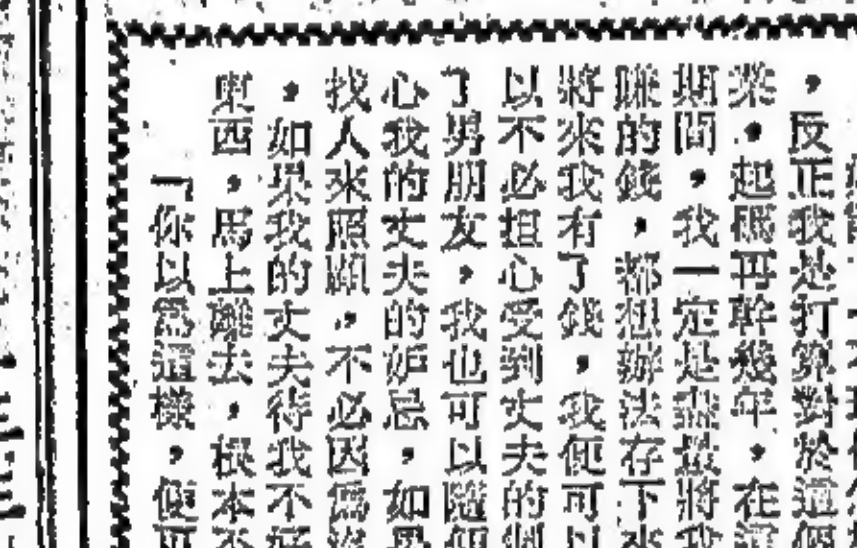 ，反正我是打算對於這個
業，起碼再幹幾年，在這
期間，我一定是盡量將我
賺的錢，都想辦法存下來
將來我有了錢，我便可以
以不必担心受到丈夫的
了男朋友，我也可以隨便
心我的丈夫的妒忌，如果
找人來照顧，不必因為
，如果我的丈夫待我不好
東西，馬上離去，根本不
「你以為這樣，便可